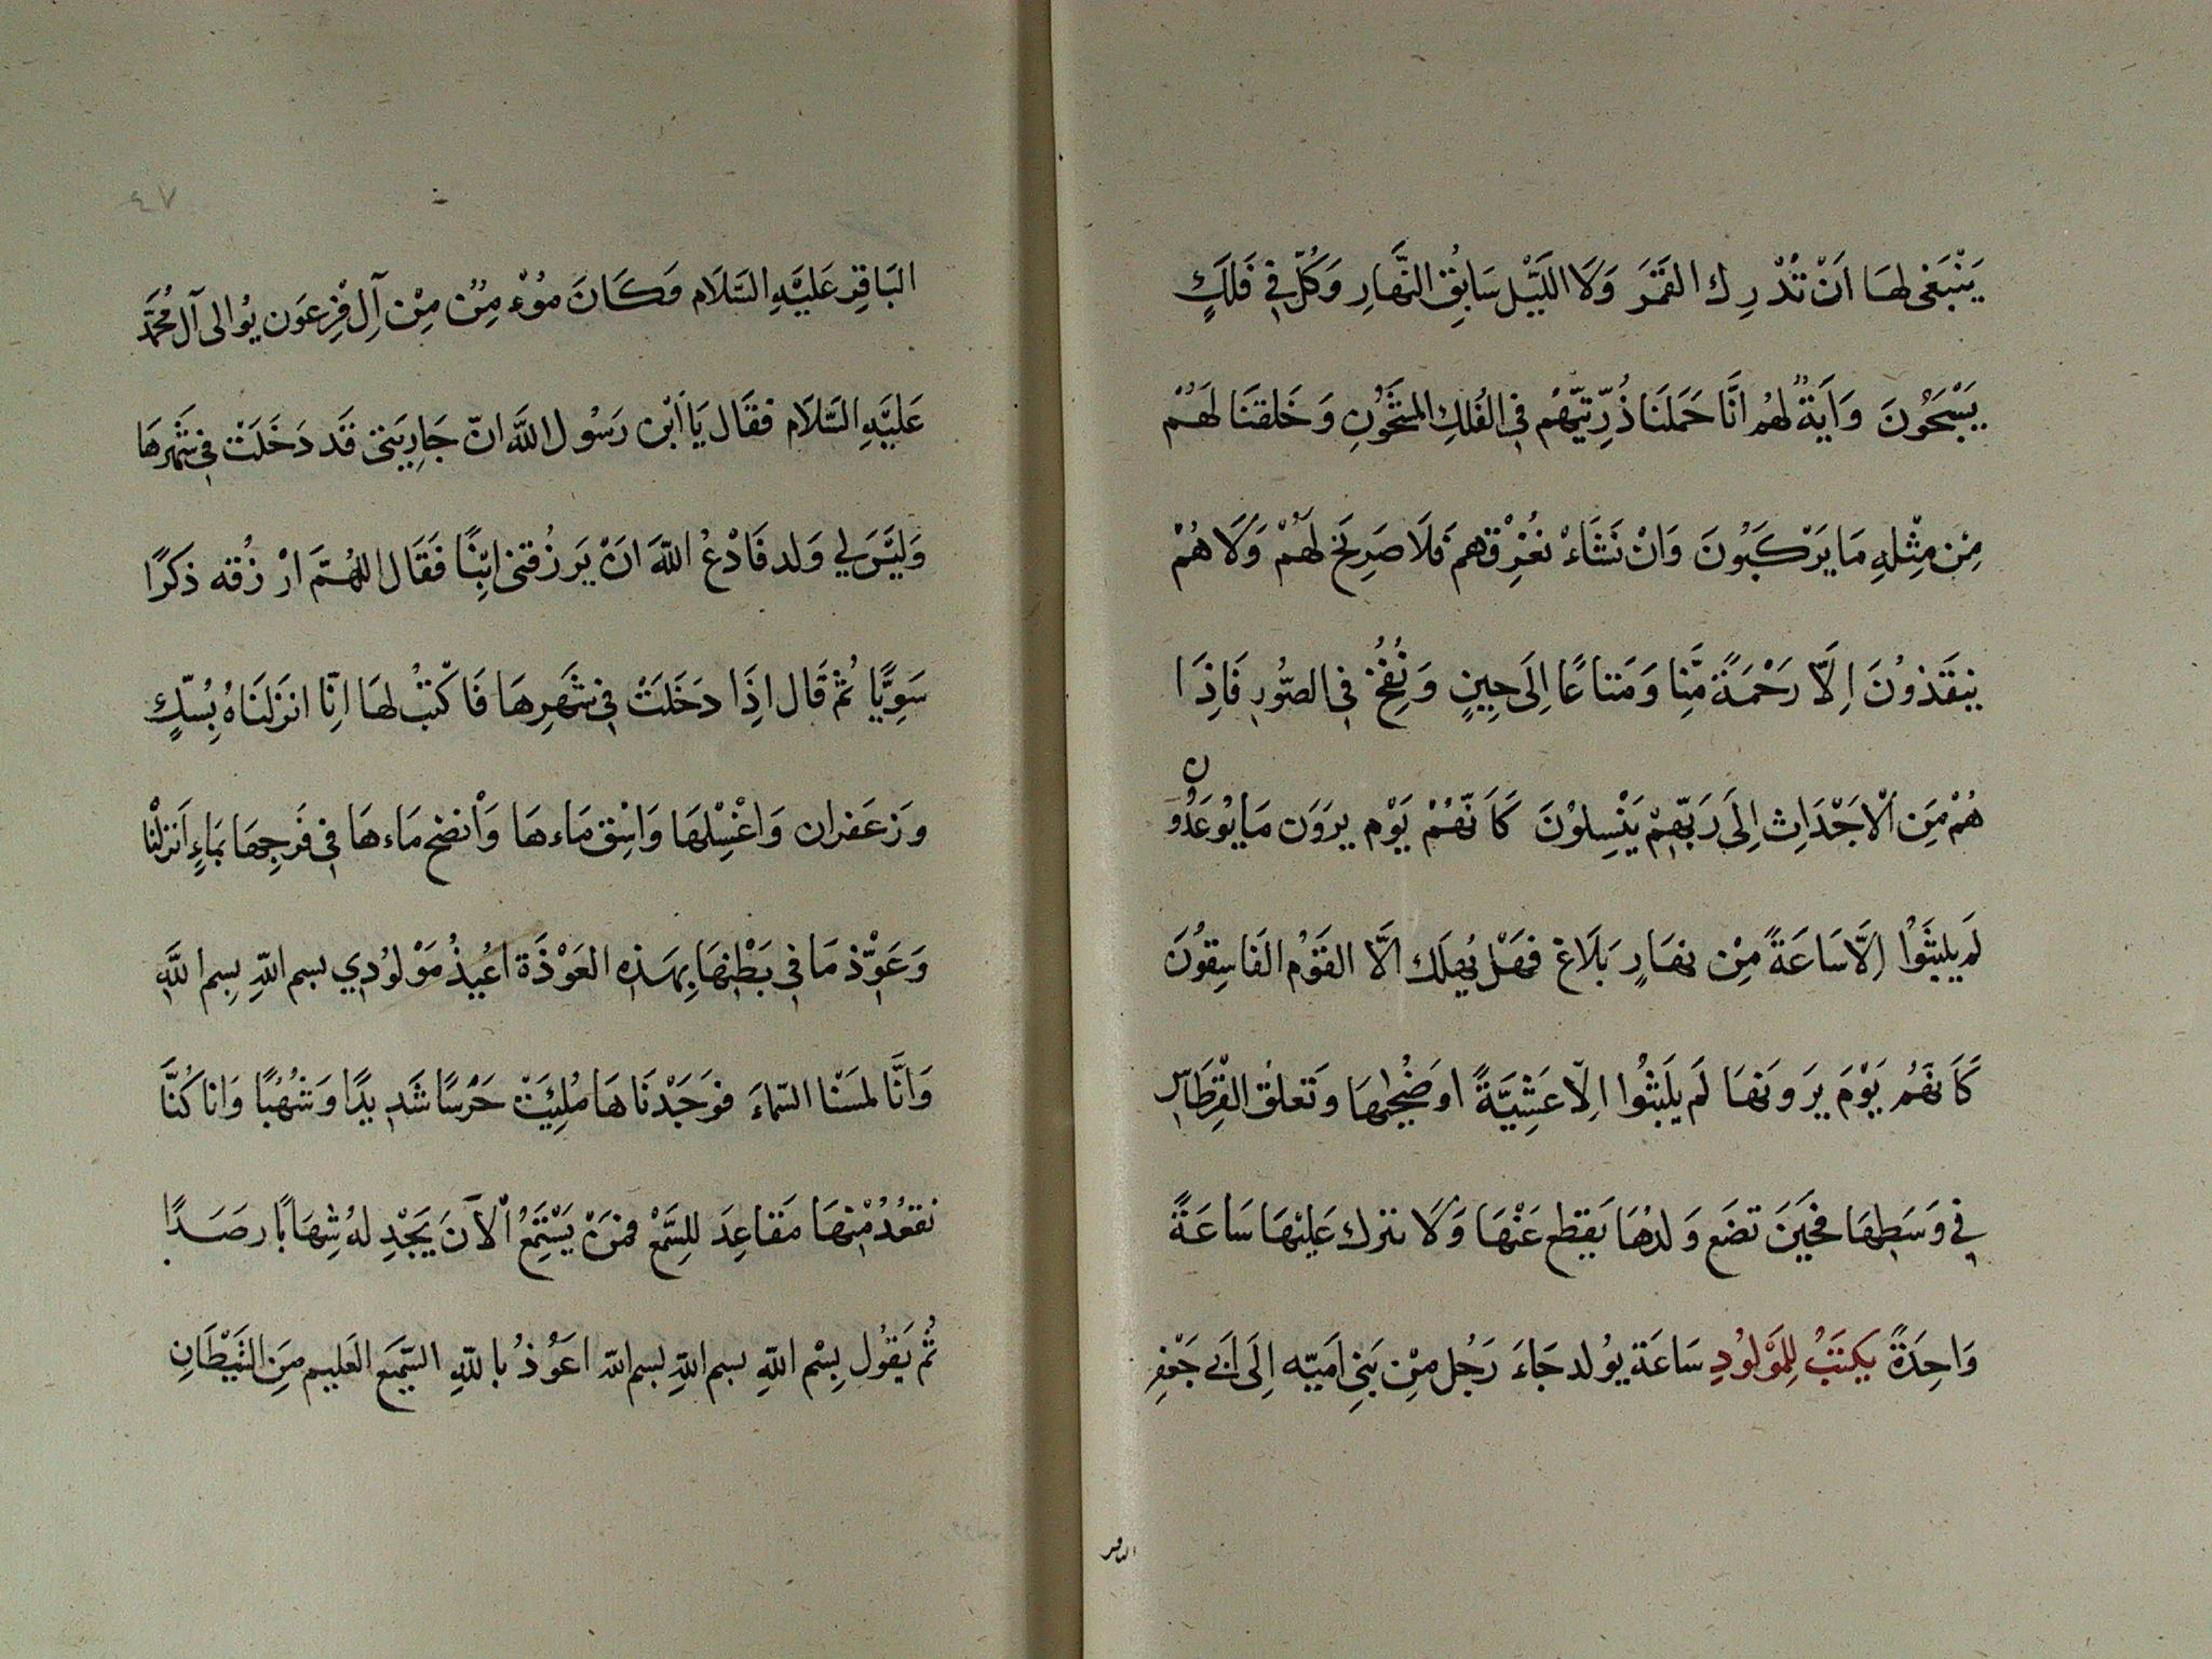 يَنْبَغى لهَا اَنْ تُدْرِك القَمَرَ وَلَا اللَيْل سَابِقُ النَّهَارِ وَكُلّ فِي فَلَكٍ
يَسْبَحُونَ وَاَيَةٌ لهُم انَّا حَمَلنَا ذُرِّيَّتَهُم فِي الفُلكِ المشْحُونِ وَخَلقنَا لهَمُ
مِنْ مِثْلهِ مَا يَرْكَبُونَ وَانْ نَشَاءْ نغُرْقهم فَلَا صَرِيخَ لَهُمْ وَلَا هُمْ
ينقَذوُنَ اِلَّا رَحْمَةً مّنِا وَمَتاعًا اِلَى حِينٍ وَنُفِخُ فِي الصُّورِ فَاِذَا
هُمْ مِنَ الْاَجْدَاثِ اِلَى رَبِّهِمْ يَنْسِلوُنَ كَاَنَّهُمْ يَوْم يرَوَن مَا يوُعَدُون
لَم يلبثَوُا اِلَّا سَاعَةً مِنْ نهَارٍ بَلَاغ فهَلْ يُهلَك الَّا القَوْمُ الفَاسِقوُنَ
كَاَنهَّمُ يَوْمَ يَرَونَهَا لَم يلَبثُوا الِّا عَشِيَّةً او ضُحٰيهَا وَتعلقُ القِرْطَاسِ
فِي وَسَطِهَا فحَينَ تضَع وَلدهُا يَقطع عَنْهَا وَلَا نترك عَليْهَا سَاعَةً
وَاحِدَةً يَكتبُ لِلمَوْلوُدِ سَاعَة يوُلد جَاءَ رَجُل مِنْ بَنِى اُمَيّه اِلَى ابَى جَعْفِر
الباقر
٤٧
البَاقِرِ عَليَهِ السَّلَام وَكَانَ مُوْء مِنٌ مِنْ آلِ فِرعَون يوُالى آل مُحَمَّد
عَليَهِ السَّلَام فقَال يَا اَبْن رَسُول اللَّه انّ جَاريَتى قَد دَخَلَتْ فِي شَهْرهَا
وَليْسَ لي وَلد فَادْعُ اللَّهَ انْ يَرزُقنى ابْنًا فَقَال اللهُمَّ ارْ زُقه ذكَرًا
سَوِيًّا ثُمْ قَال اِذَا دخَلَتْ فِي شَهْرِهَا فَاكْتبْ لهَا انِّا انزَلنَاهُ بِمْسكٍ
وزَعَفران وَاغْسِلهَا وَاسْق مَاءهَا وَانضح مَاءهَا فِي فَرجِهَا بمَاءِ اَنزلْنا
وَعَوِّذ مَا فِي بَطْنِهَا بِهَذِهِ العَوْذَة اعُيذُ مَوْلوُدِي بسم اللهِ بِسم اللَّهِ
وَانَّا لمسَنْا السّماءَ فوَجَدْنَاهَا مُلِئَتْ حَرْسًا شَدِيدًا وَشُهُبًا وَانا كُنَّا
نقعُدُ مْنِهَا مَقاعِدَ للِسَّمْع فمَنْ يَسْتَمِعُ الْآنَ يَجْدِ لهُ شِهَابًا رصَدًا
ثُم يَقوُل بِسْم اللهِ بسم اللهِ بسم الله اعَوُذ باللهِ السَّميَع العَليم مِنَ الشَيْطَانِ